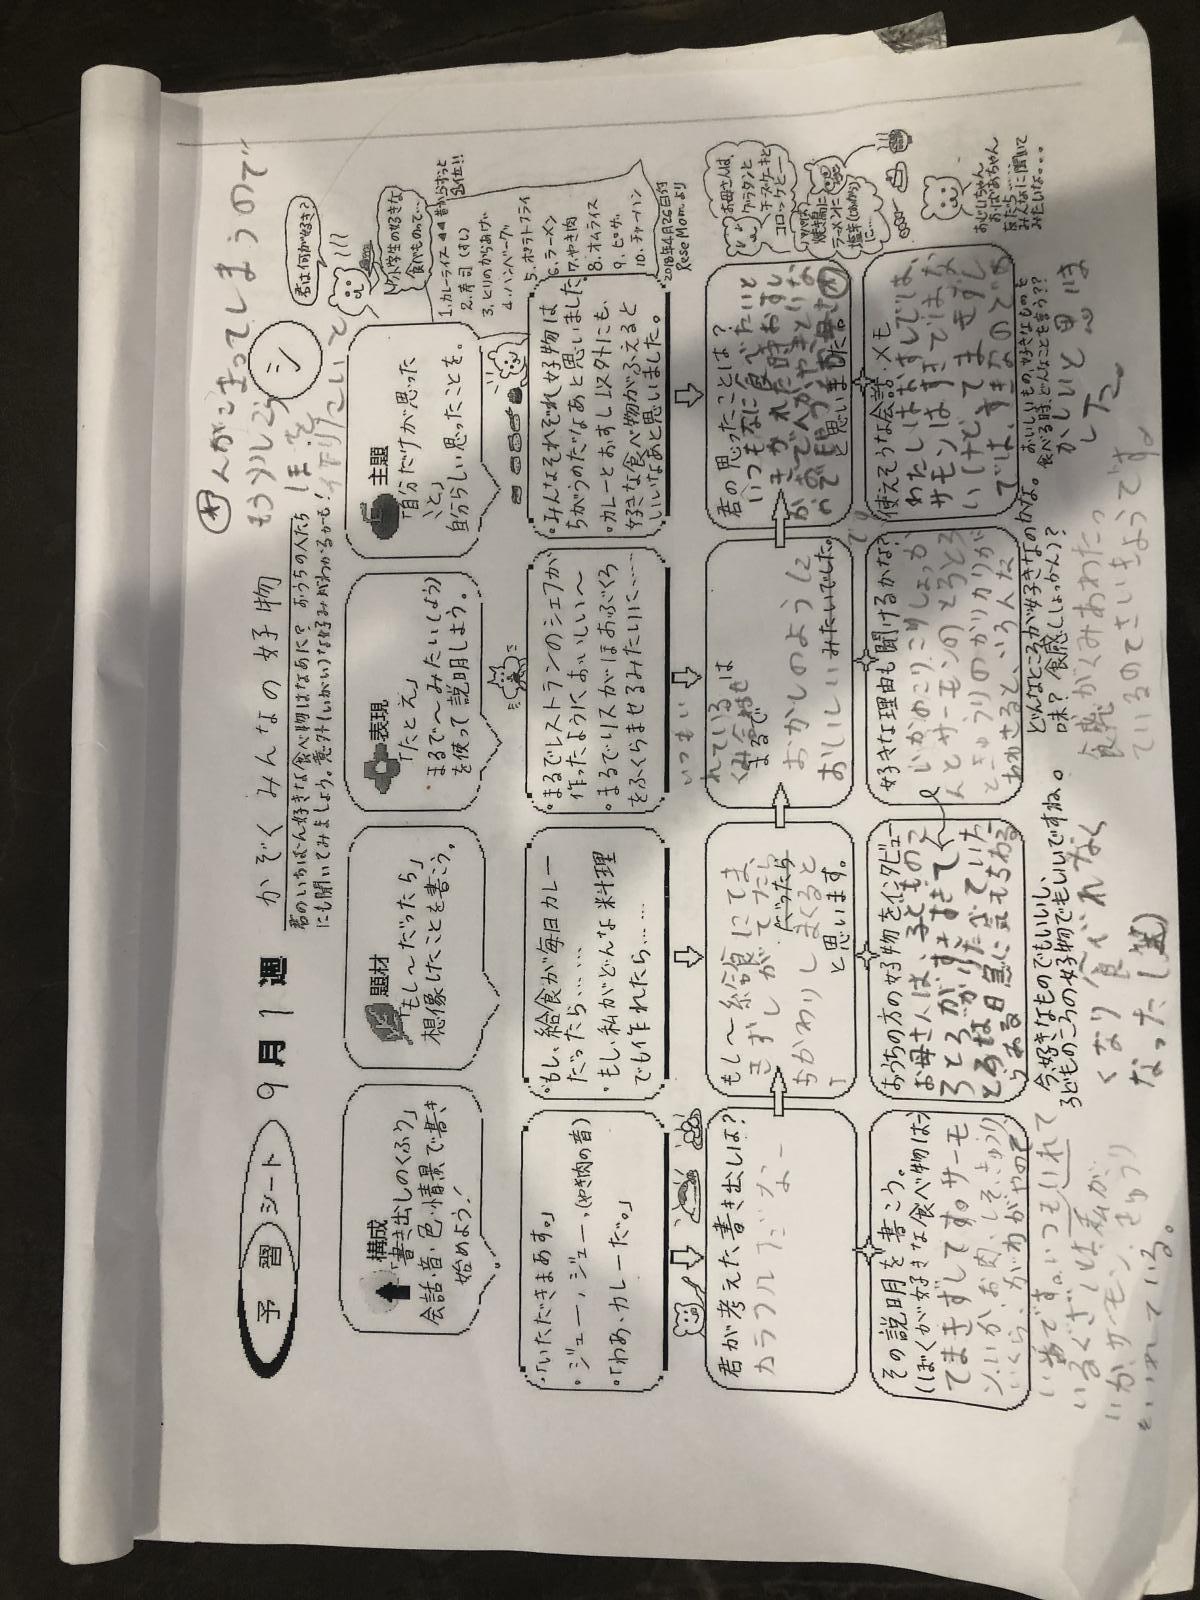 予習シート 9月1週 かぞくみんなの好物
君のいちばん好きな食べ物はなあに？おうちの人たち
にも聞いてみましょう。意外(いがい)な好みがわかるかも！
君は何が好き？
小学生の好きな
食べもので…
1.カレーライス
昔からずっと
1位!!
2.寿司(すし)
3.とりのからあげ
4.ハンバーグ
5.ポテトフライ
6.ラーメン
7.やき肉
8.オムライス
9.ピザ
10.チャーハン
2018年4月26日付
ReseMomより
構成
「書き出しのくふう」
会話・音・色・情景で書き
始めよう！
題材
「もし～だったら」
想像したことを書こう。
表現
「たとえ」
まるで～みたい(よう)
を使って説明しよう。
主題
「自分だけが思った
こと」
自分らしい思ったことを。
・「いただきまあす。」
・ジュー、ジュー、(やき肉の音)
・「わあ、カレーだ。」
・もし、給食が毎日カレー
だったら……
・もし、私がどんな料理
でも作れたら……
・まるでレストランのシェフが
作ったようにおいしい～
・まるでリスがほおぶくろ
をふくらませるみたいに……
・みんなそれぞれ好物は
ちがうのだなあと思いました
・カレーとおすし以外にも、
好きな食べ物がふえると
いいなあと思いました。
君が考えた書き出しは？
カラフルだなー
もし～給食にてま
きずしがでたら
だったら
おかわりしまくると
と思います。
いつもい
れている
くみ合わせは
まるで
おかしのように
おいしいみたいでした。
です
君の思ったことは？
いつも
と思いました。
お母さんは、
グラタンと
チーズケーキと
コロッケとー
パパは
焼き鳥に
ラーメンに
塩辛(しおから)
に…
その説明を書こう。
(ぼくが好きな食べ物は～)
てまきずしです。サーモ
ン、いか、お肉、しそ、きゅうり、
いくら、
いつもいれて
いるぐざいは、私が、
いか、サーモン、きゅうり
をいれている。
おうちの方の好物をインタビュー
お母さんは、子どものこ
ろ
今、好きなものでもいいし、
子どものころの好物でもいいですね。
くなり食べれなく
なった(笑)
好きな理由も聞けるかな？
いかのこりこりしょっか
んとサーモンのとろとろ
ときゅうりのかりかりが
あわさると、いろんな
どんなところが好きなのかな。
味？食感(しょっかん)？
食感がくみあわたっ
ているのでさいきょうです
使えそうな会話・メモ
わたしはおすしでは、
サーモンはすきではな
いけどてまきずし
では、すきなのでお
おいしいもの、好きなものを
食べる時、どんなことを言う？？
かしいと思いま
した。
おじいちゃん
おばあちゃん
友だち……
みんなに聞いて
みたいな…